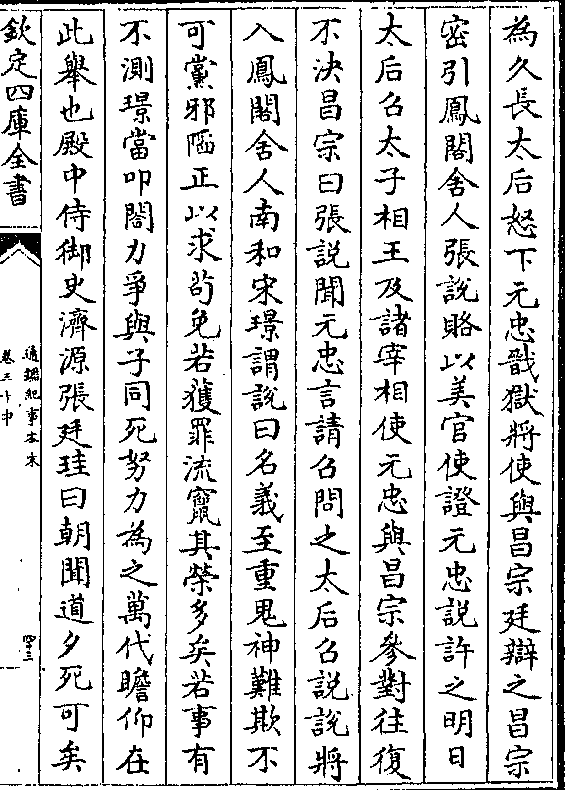 為久長太后怒下元忠戬獄將使與昌宗廷辯之昌宗
密引鳳閣舍人張說賂以美官使證元忠說許之明日
太后召太子相王及諸宰相使元忠與昌宗參對往復
不決昌宗曰張說聞元忠言請召問之太后召說說將
入鳳閣舍人南和宋璟謂說曰名義至重鬼神難欺不
可黨邪陷正以求苟免若獲罪流竄其榮多矣若事有
不測璟當叩閤力爭與子同死努力為之萬代瞻仰在
此舉也殿中侍御史濟源張廷珪曰朝聞道夕死可矣
欽定四庫全書
通鑑紀事本末
卷三十中
四三